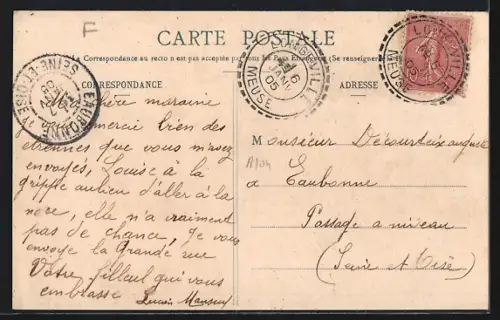 F
CARTE POSTALE
La Correspondance au recto n'est pas acceptée par tous les Pays Etrangers (Se renseigner
CORRESPONDANCE
ADRESSE
LONGEVILLE
6
JANV
05
MEUSE
LONGEVILLE
05
MEUSE
EAUBONNE
SEINE-ET-OISE
chère maraine
je remercie bien des
étrennes que vous m'avez
envoyés, Louise à la
grippe au lieu d'aller à la
noce, elle n'a vraiment
pas de chance, je vous
envoye la Grande rue
Votre filleul qui vous
embrasse Lucien
Monsieur Décourteix auguste
a Eaubonne
Passage a niveau
(Seine et Oise)